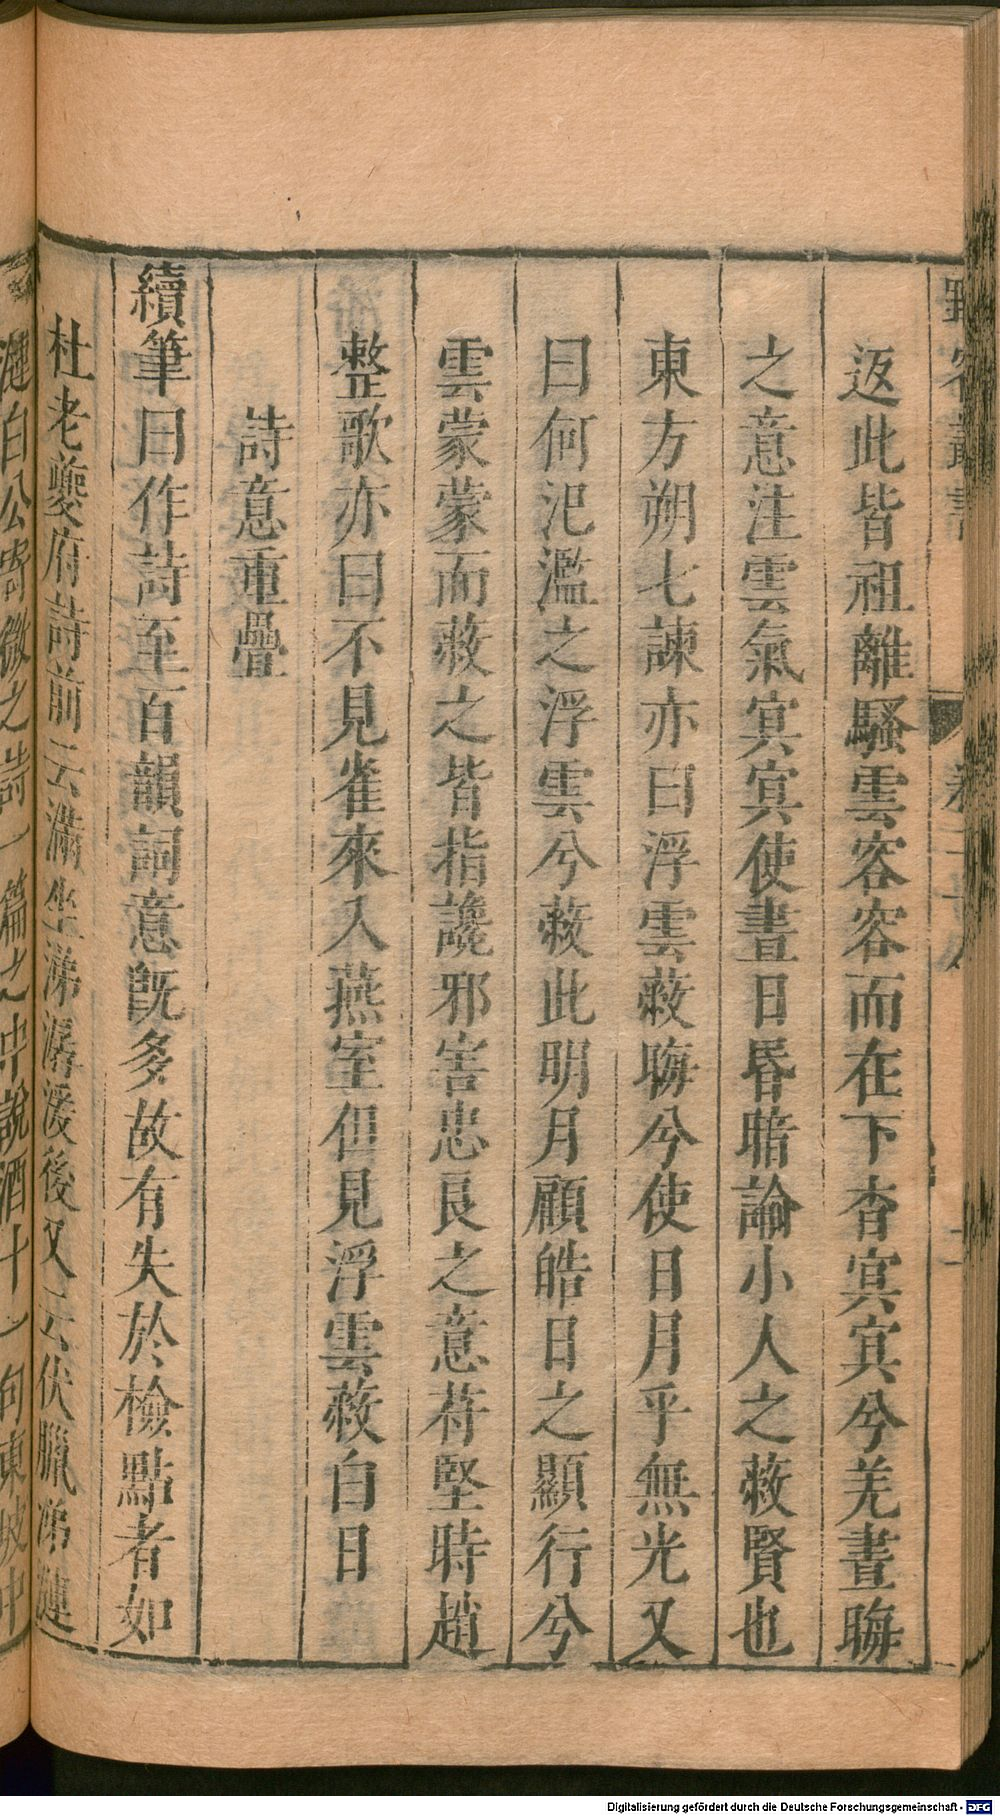 返此皆祖離騷雲容容而在下杳冥冥兮羌晝晦
之意注雲氣冥冥使晝日昏暗論小人之蔽賢也
東方朔七諫亦曰浮雲蔽晦兮使日月乎無光又
曰何氾濫之浮雲兮蔽此明月顧皓日之顯行兮
雲蒙蒙而蔽之皆指讒邪害忠良之意苻堅時趙
整歌亦曰不見雀來入燕室但見浮雲蔽白日
詩意重疊
續筆曰作詩至百韻詞意旣多故有失於檢點者如
杜老夔府詩前云滿坐涕潺湲後又云伏臘涕漣
漣白公寄微之詩一篇之中說酒十一句東坡中
Digitalisierung gefördert durch die Deutsche Forschungsgemeinschaft - DFG